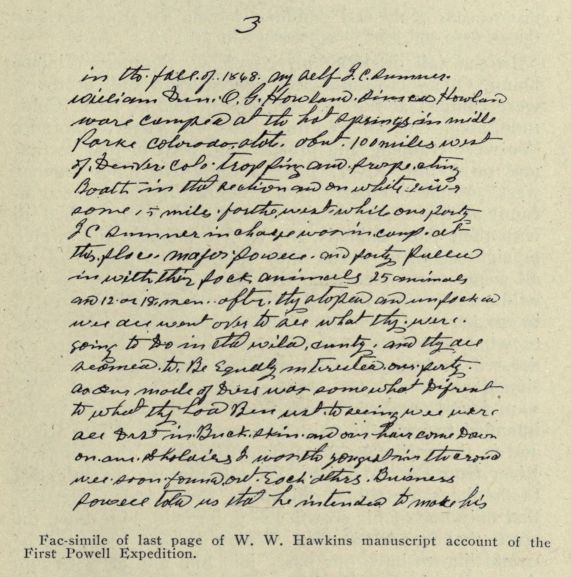 3
in the. fall. of. 1868. my self J. C. Sumner.
William Dun. O. G. Howland. Howland
ware camped at the hot springs in midle
Parke colorado. stat. abut. 100 miles west
of. Denver colo. tropping. and. prospecting
Boath in that section and on white river
some. 75 mile. forthe. west. while our party
J C Sumner in charge was in. camp. at
this. place. major. powell. and party pulled
in with thir pack animells 25 animals
and 12 or 18, men. after. thy stoped and unpacked
wee all went over to see what thy. were.
going to Do in that wild. cuntry. and thy all
seamed. to. Be Equally intrested our. party.
as our mode of Dress was somewhat Difrent
to what thy had Ben ust. to seeing wee were
all Drest in Buck. skin. and our hair come Down
on. our. sholders I was the yongest in the croud
wee. soon. found out. Each. others. Buisness
powell told us that he intended to make his
Fac-simile of last page of W. W. Hawkins manuscript account of the
First Powell Expedition.